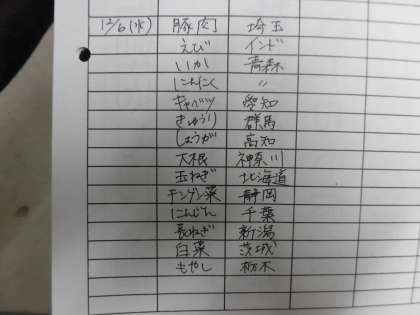 12/6(水) 豚肉 埼玉
えび インド
いか 青森
にんにく 〃
キャベツ 愛知
きゅうり 群馬
しょうが 高知
大根 神奈川
玉ねぎ 北海道
チンゲン菜 静岡
にんじん 千葉
長ねぎ 新潟
白菜 茨城
もやし 栃木